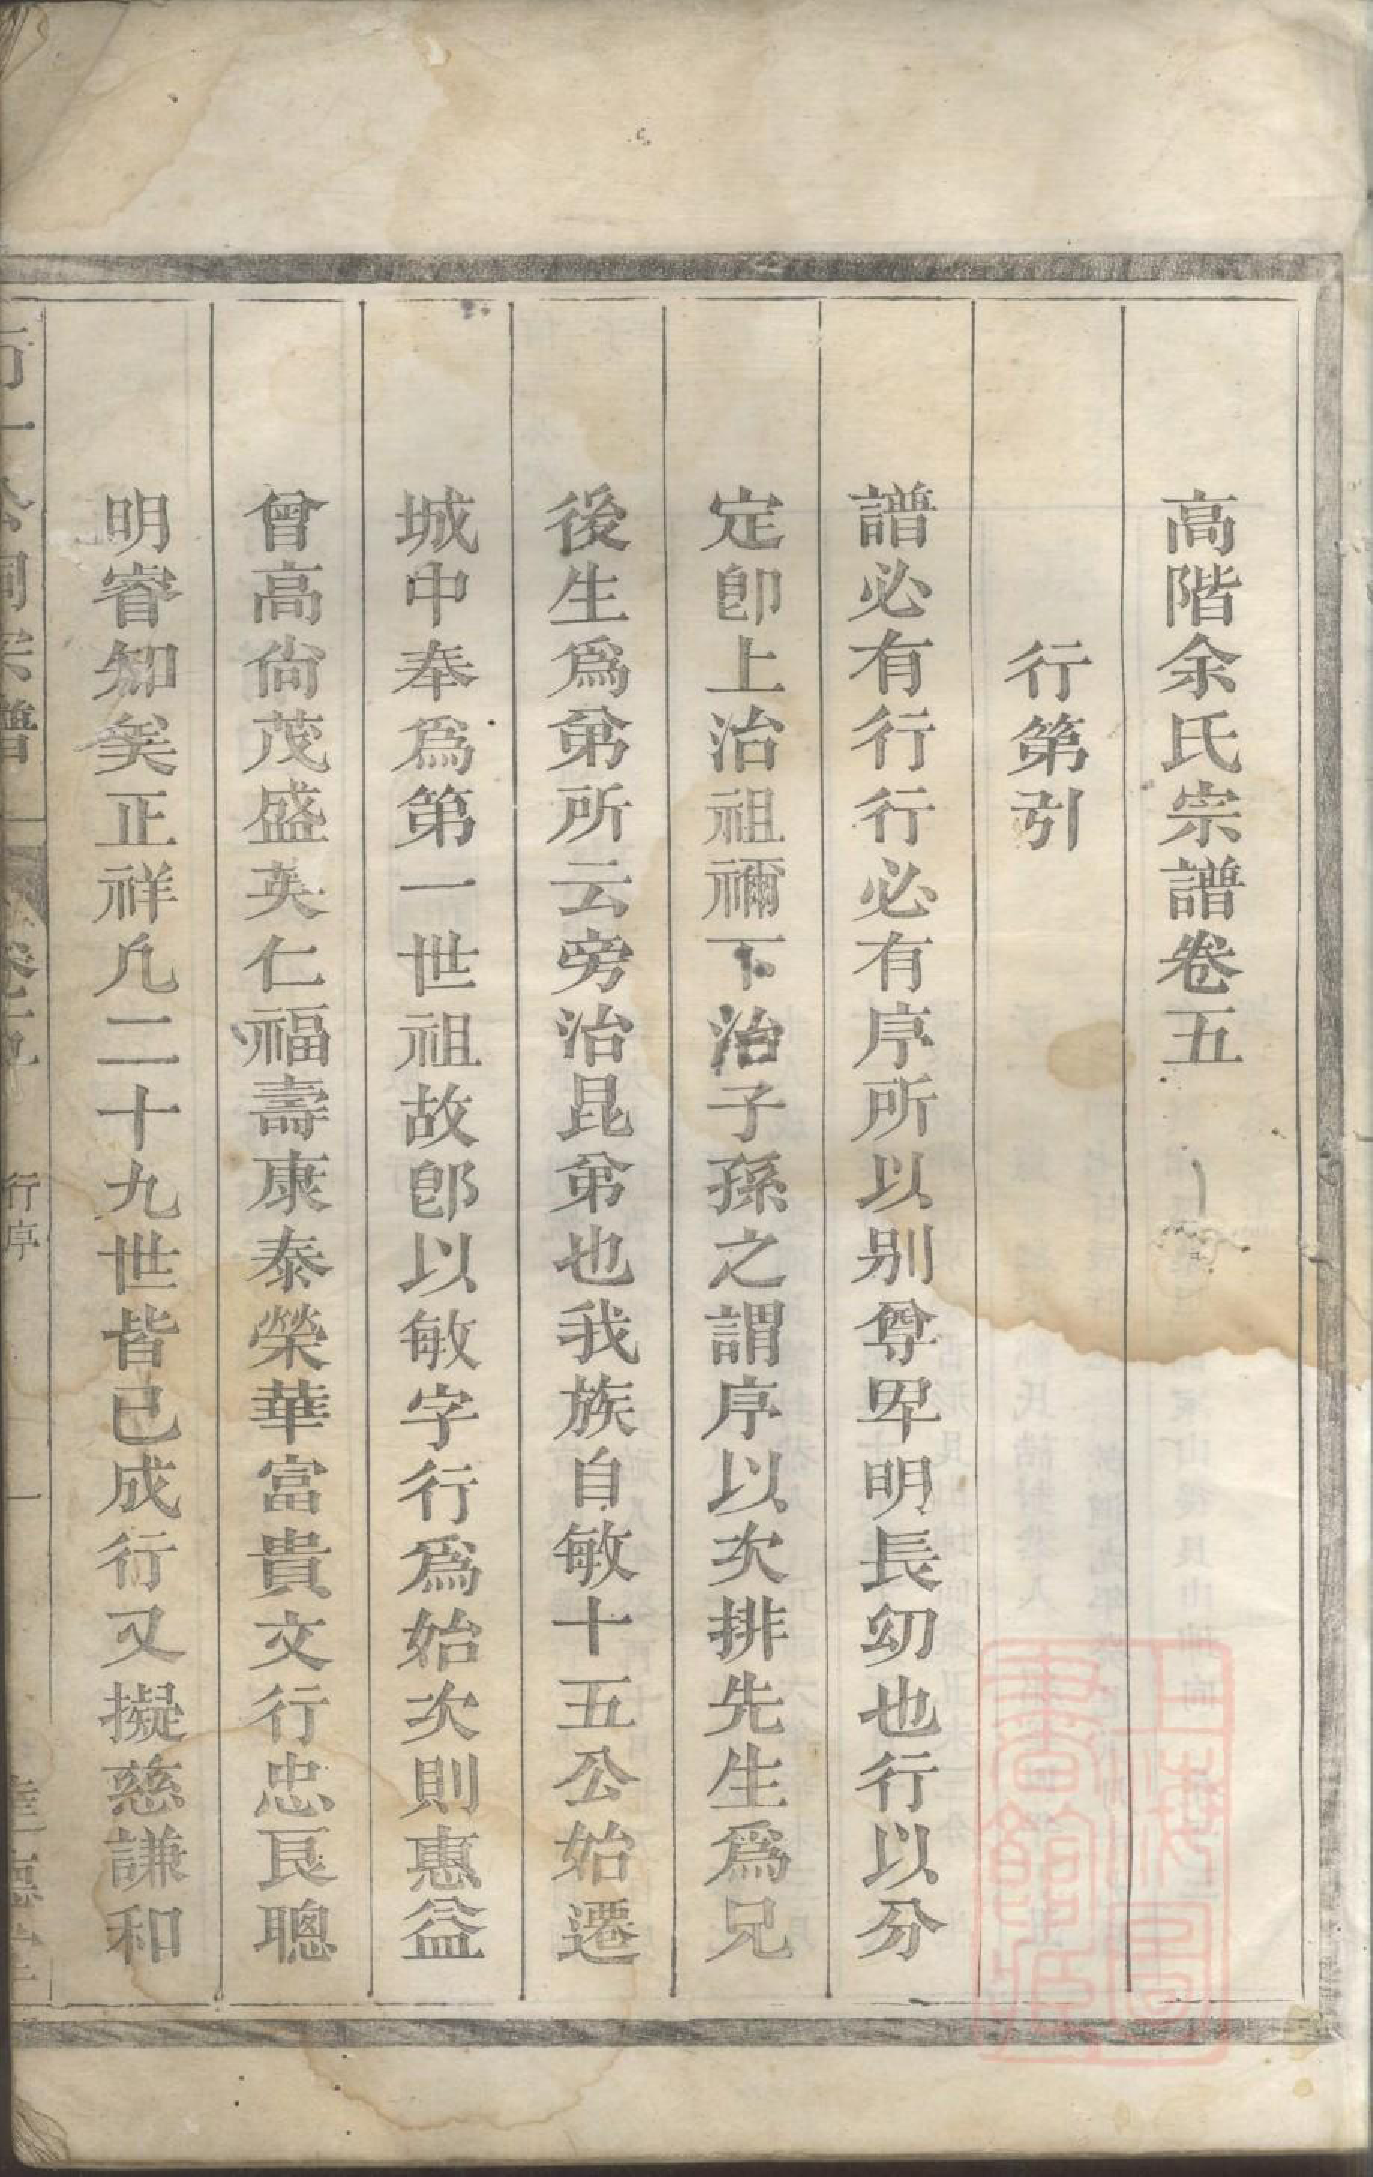 高階余氏宗譜卷五
行第引
譜必有行行必有序所以别尊卑明長幼也行以分
定卽上治祖禰下治子孫之謂序以次排先生爲兄
後生爲弟所云旁治昆弟也我族自敏十五公始遷
城中奉爲第一世祖故卽以敏字行爲始次則惠益
曾高尙茂盛英仁福壽康泰榮華富貴文行忠良聰
明睿知矣正祥凢二十九世皆已成行又擬慈謙和
行序
一
上海圖書館藏